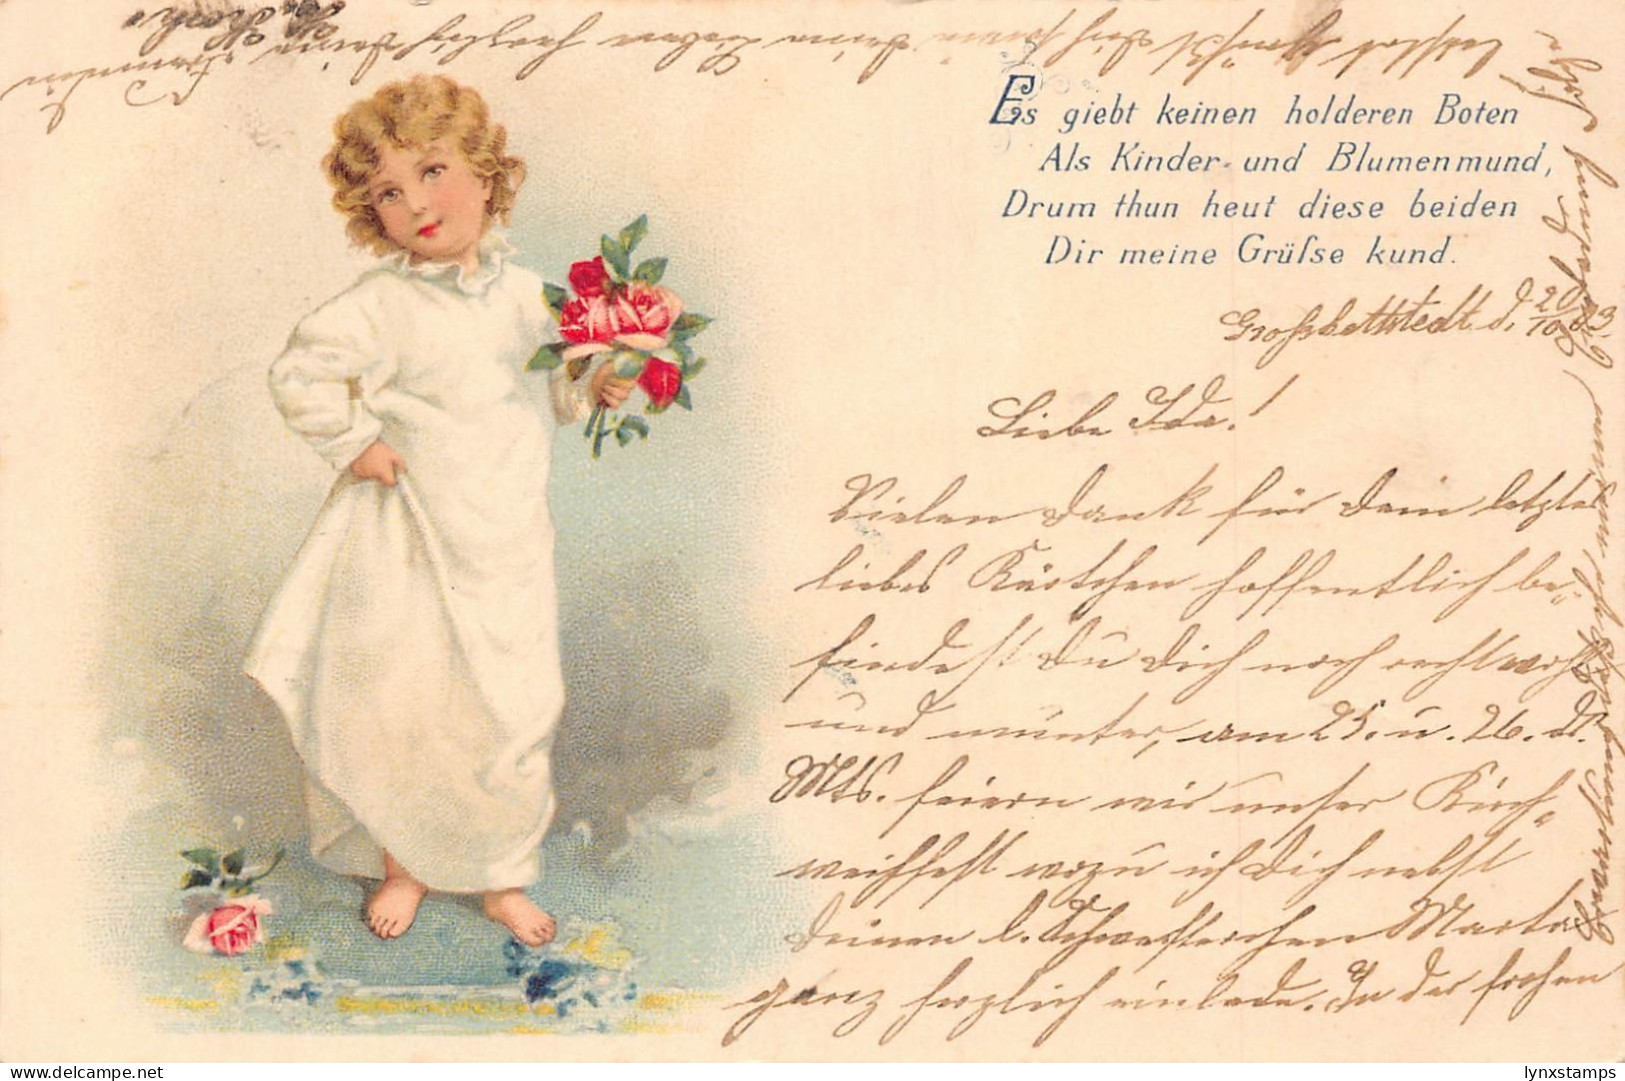 Es giebt keinen holderen Boten
Als Kinder- und Blumenmund,
Drum thun heut diese beiden
Dir meine Grüſse kund.
Großbettstedt d. 20/10 03.
Liebe Ida!
Vielen Dank für Dein letztes
liebes Kärtchen hoffentlich be=
findest Du Dich noch recht wohl
und munter, am 25. u. 26. ds.
Mts. feiern wir unser Kirch=
weihfest wozu ich Dich nebst
Deinen l. Schwesterchen Marta
ganz herzlich einlade. In der frohen
Freundin
lynxstamps